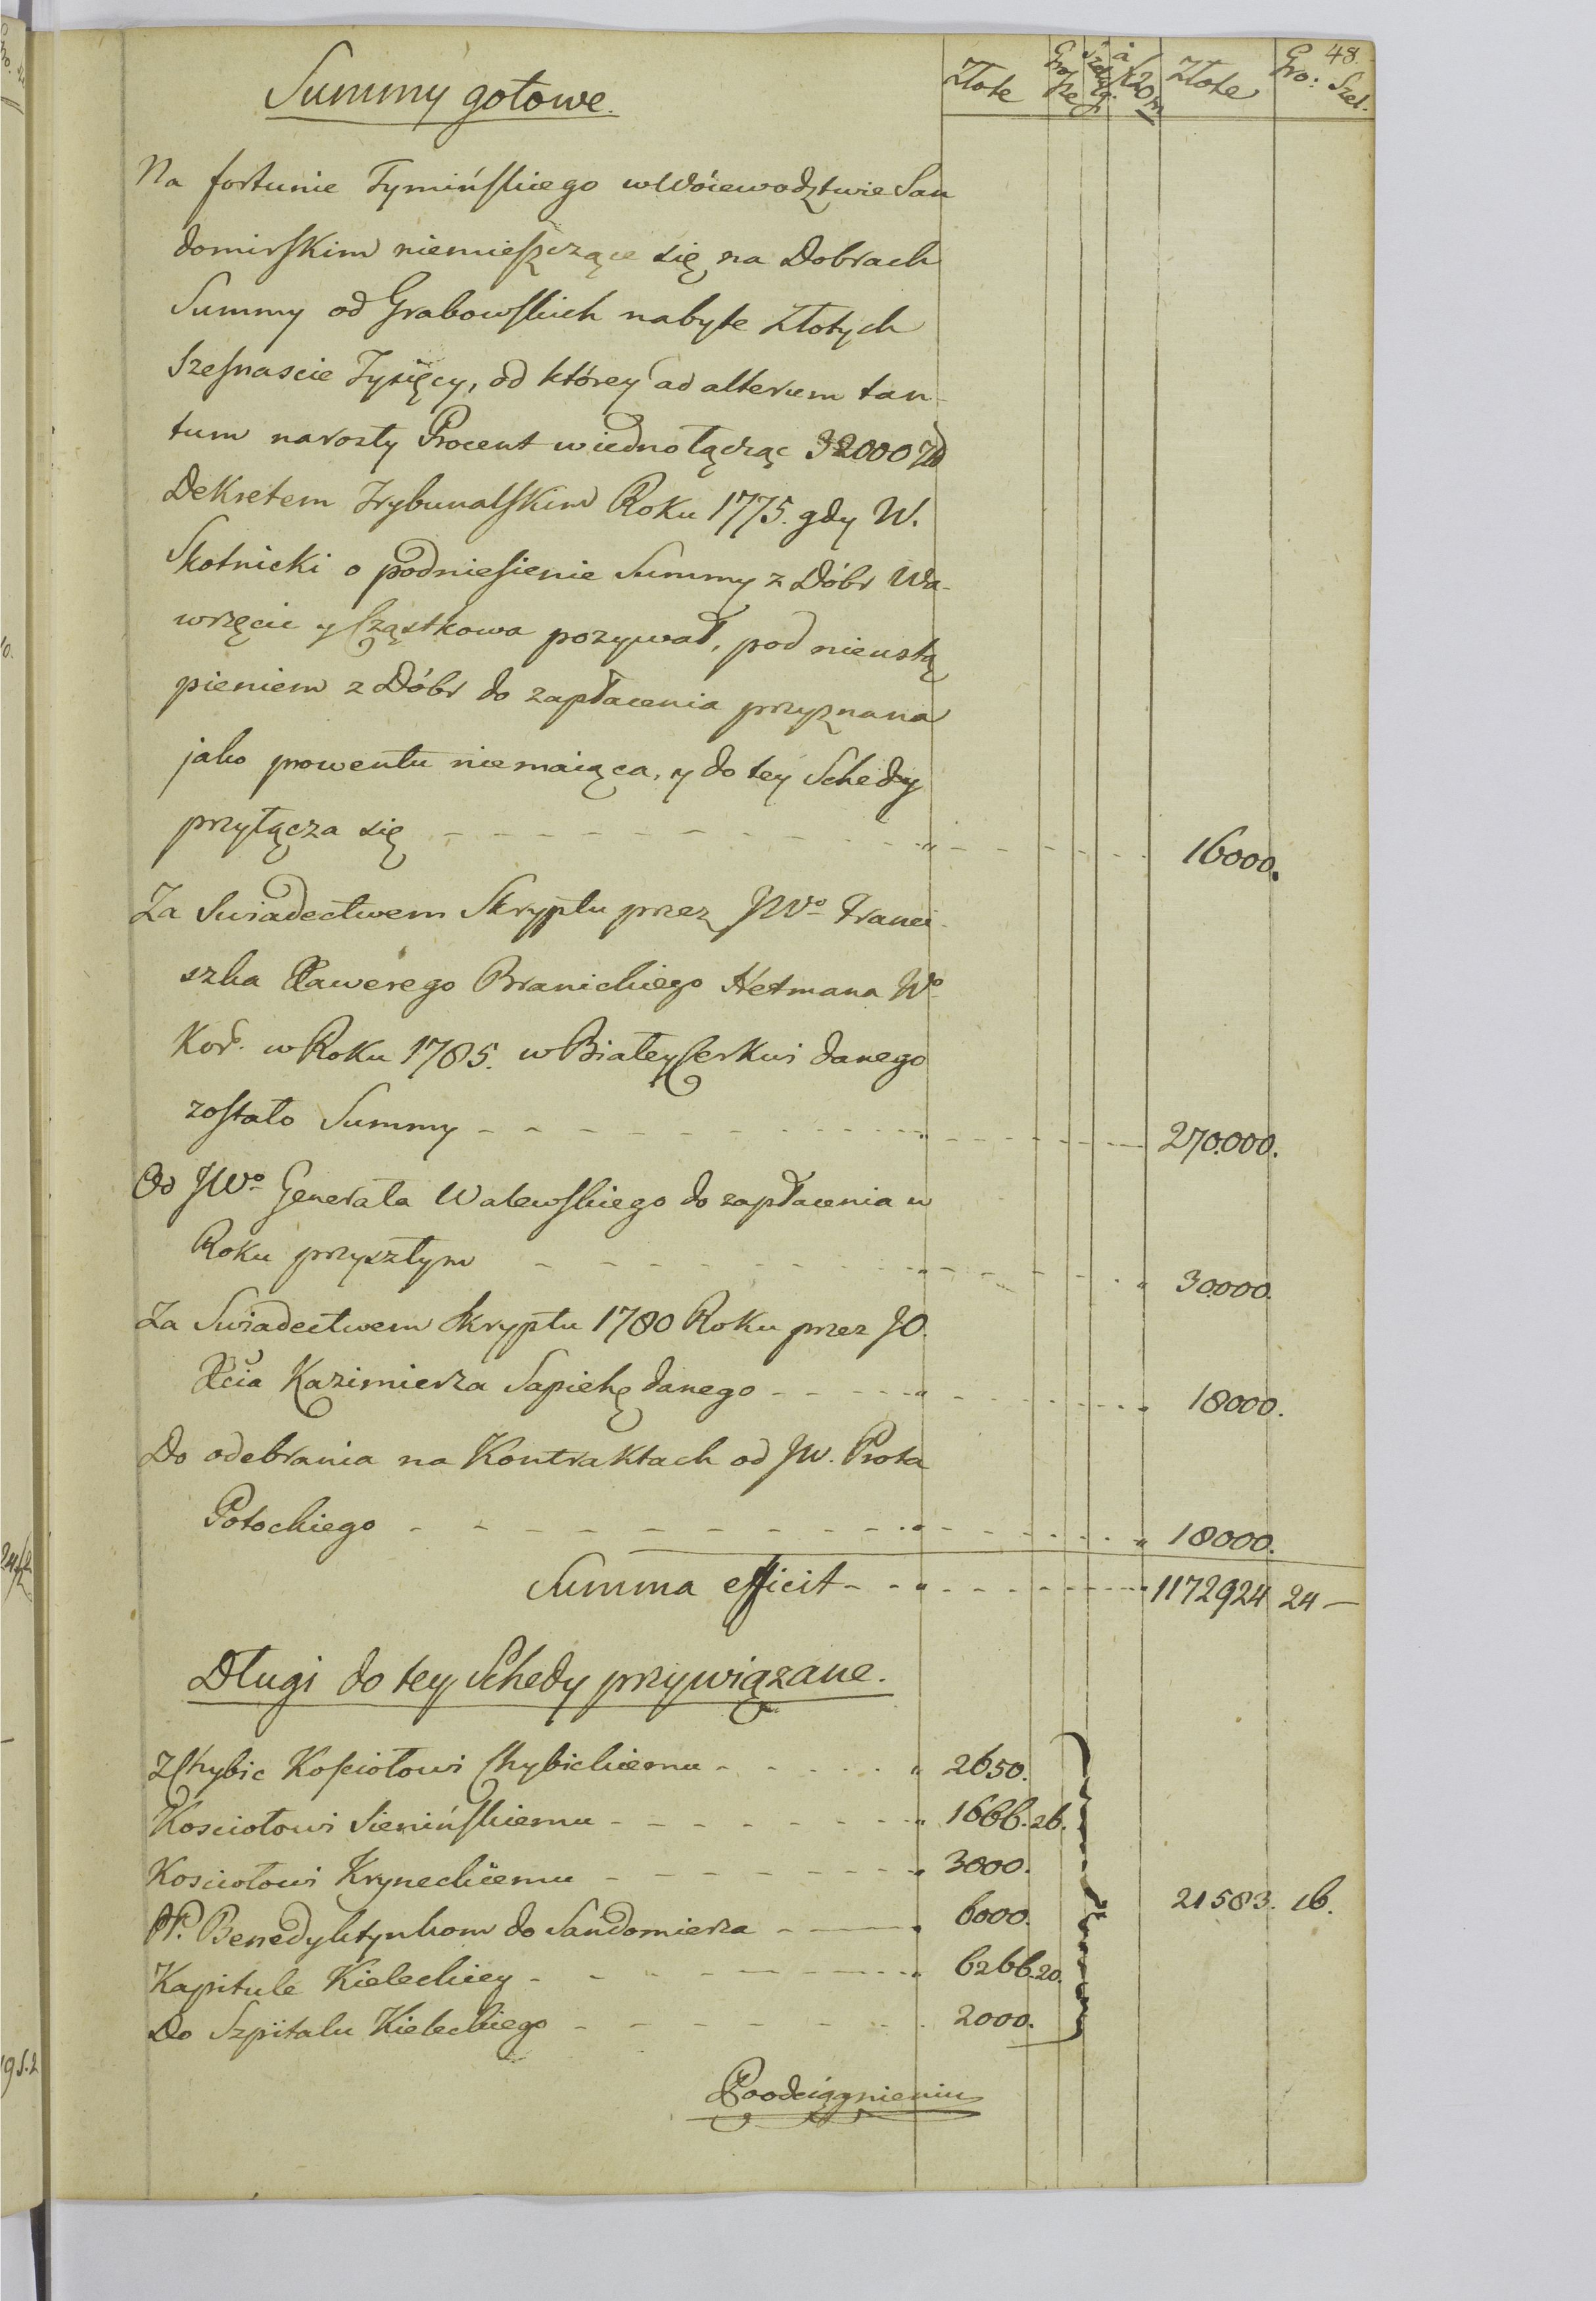 48.
Złote Grosze Szelągi à 20 m Złote Gro: Szel.
Summy gotowe.
Na fortunie Tymińskiego w Wóiewodztwie San
domirskim niemieszczące się na Dobrach
Summy od Grabowskich nabyte Złotych
Szesnascie Tysięcy, od którey ad alterum tan-
tum narosły Procent w iedno łącząc 32000 Zł
Dekretem Trybunalskim Roku 1775. gdy W.
Skotnicki o podniesienie Summy z Dóbr Wa-
wrzęcic y Cząstkowa pozywał, pod nieustą
pieniem z Dóbr do zapłacenia przyznana
jako prowentu niemaiąca, y do tey Schedy
przyłącza się 16000.
Za Swiadectwem Skryptu przez JWo Franci-
szka Xawerego Branickiego Hetmana Wo
Kor. w Roku 1785. w Białey Cerkwi danego
zostało Summy 270.000.
Od JWo Generała Walewskiego do zapłacenia w
Roku przyszłym 30.000.
Za Swiadectwem skryptu 1780 Roku przez JO.
Xcia Kazimierza Sapiehę danego 18000.
Do odebrania na Kontraktach od JW. Prota
Potockiego 18000.
Summa efficit 1172924 24 —
Długi do tey Schedy przywiązane.
Z Chybic Kościołowi Chybickiemu 2650.
Kosciołowi Sienińskiemu 1666. 26.
Kosciołowi Kryneckiemu 3000.
PP. Benedyktynkom do Sandomierza 6000. 21583. 16.
Kapitule Kieleckiey 6266. 20.
Do Szpitalu Kieleckiego 2000.
Po odciągnieniu